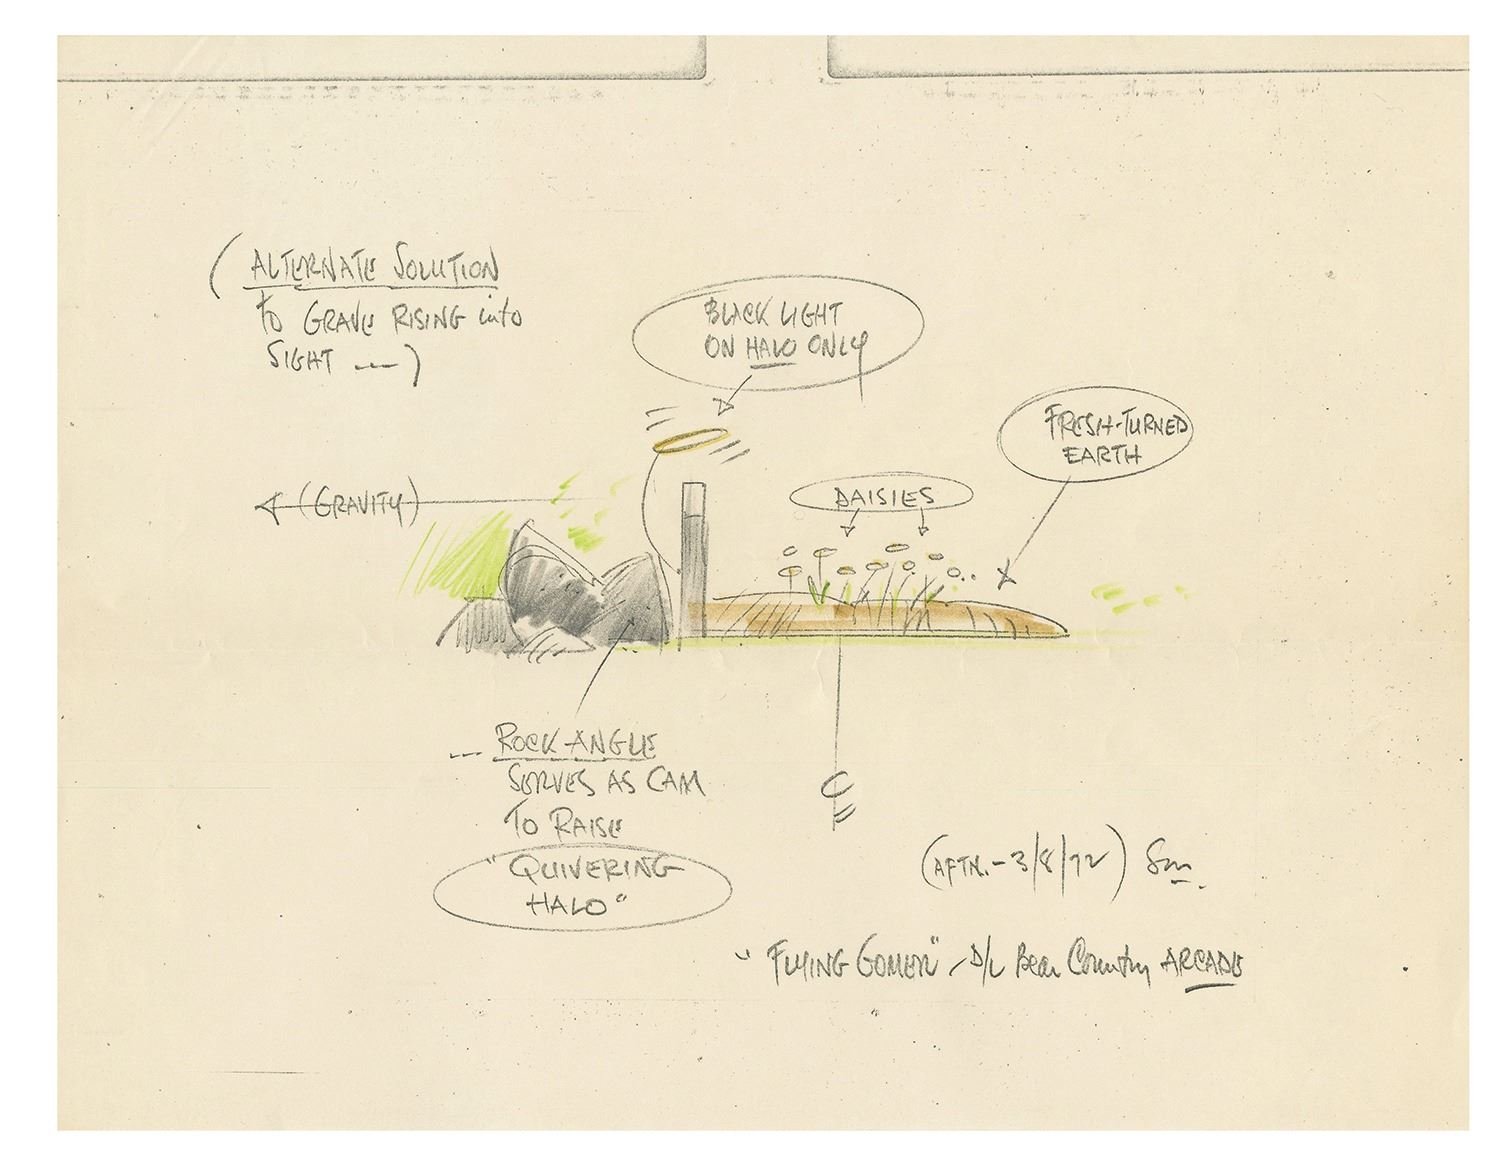 (ALTERNATE SOLUTION
to GRAVE RISING into
SIGHT ---)
BLACK LIGHT
ON HALO ONLY
FRESH-TURNED
EARTH
DAISIES
(GRAVITY)
--- ROCK ANGLE
SERVES AS CAM
TO RAISE
"QUIVERING
HALO"
(AFTN.-3/8/72)
"FLYING GOMER" - D/L Bear Country ARCADE